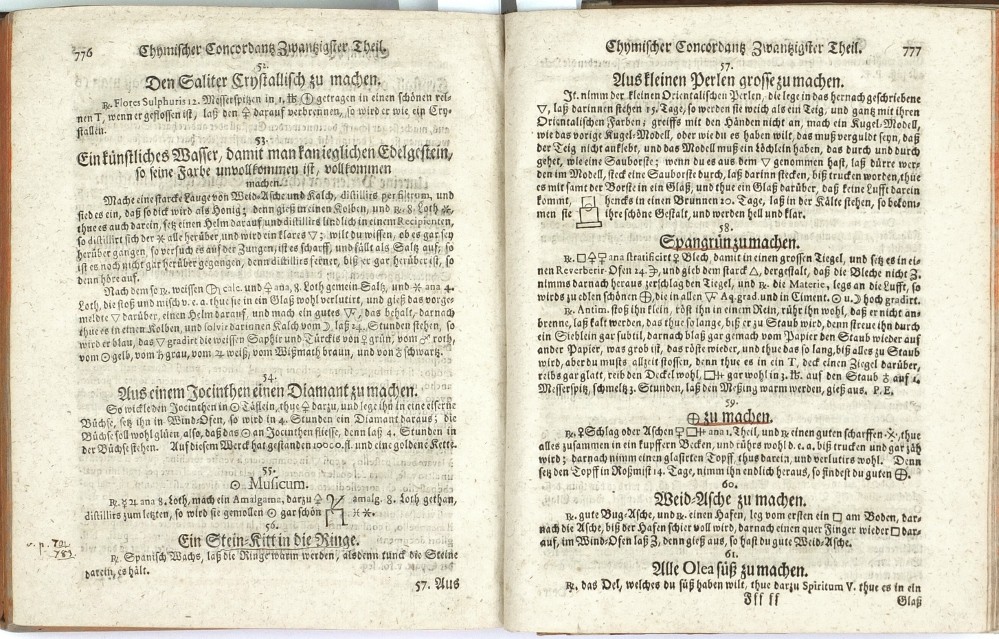 776 Chymischer Concordantz Zwantzigster Theil.
52.
Den Saliter Crystallisch zu machen.
℞. Flores Sulphuris 12. Messerspitzen in 1. ℔ 🜨 getragen in einen schönen rei-
nen T, wenn er geflossen ist, laß den 🜍 darauf verbrennen, so wird er wie ein Cry-
stallen.
53.
Ein künstliches Wasser, damit man kan ieglichen Edelgestein,
so seine Farbe unvollkommen ist, vollkommen
machen.
Mache eine starcke Lauge von Weid-Asche und Kalch, distillirs per filtrum, und
sied es ein, daß so dick wird als Honig; denn gieß in einen Kolben, und ℞. 8. Loth ✶,
thue es auch darein, setz einen Helm darauf und distillirs lind doch in einem Recipienten,
so distillirt sich der ✶ alle herüber, und wird ein klares ▽; wilt du wissen, ob es gar sey
herüber gangen, so versuch es auf der Zungen, ist es scharff, und fällt als Saltz auf, so
ist es noch nicht gar herüber gegangen, denn distillirs ferner, biß er gar herüber ist, so
denn höre auf.
Nach dem so ℞. weissen calc. und ana, 8. Loth gemein-Saltz, und ✶ ana 4.
Loth, die stoß und misch v. e. a. thue sie in ein Glaß wohl verlutirt, und gieß das vorge-
meldte ▽ darüber, einen Helm darauf, und mach ein gutes, das behalt, darnach
thue es in einen Kolben, und solvir darinnen Kalch vom ☽, laß 24. Stunden stehen, so
wird er blau, das ▽ gradirt die weissen Saphir und Türckis von ♀ grün, vom ♂ roth,
vom ☉ gelb, vom ♄ grau, vom ♃ weiß, vom Wißmath braun, und von ♁ schwartz.
54.
Aus einem Jocinthen einen Diamant zu machen.
So wickle den Jocinthen in ☉ Täflein, thue darzu, und lege ihn in eine eiserne
Büchse, setz ihn in Wind-Ofen, so wird in 4. Stunden ein Diamant daraus; die
Büchse soll wohl glüen, also, daß das ☉ an Jocinthen fliesse, denn laß 4. Stunden in
der Büchse stehen. Aus diesem Werck hat gestanden 10000. fl. und eine goldene Kette.
55.
☉ Musicum.
℞. ☿ ♃ ana 8. Loth, mach ein Amalgama, darzu amalg. 8. Loth gethan,
distillirs zum letzten, so wird sie gemollen ☉ gar schön
56.
Ein Stein-Kitt in die Ringe.
℞. Spanisch Wachs, laß die Ringe warm werden, alsdenn tunck die Steine
darein, es hält.
57. Aus
Chymischer Concordantz Zwantzigster Theil. 777
57.
Aus kleinen Perlen grosse zu machen.
It. nimm der kleinen Orientalischen Perlen, die lege in das hernach geschriebene
▽, laß darinnen stehen 15. Tage, so werden sie weich als ein Teig, und gantz mit ihren
Orientalischen Farben; greiffs mit den Händen nicht an, mach ein Kugel-Modell,
wie das vorige Kugel-Modell, oder wie du es haben wilt, das muß verguldt seyn, daß
der Teig nicht anklebt, und das Modell muß ein Löchlein haben, das durch und durch
gehet, wie eine Sauborste; wenn du es aus dem ▽ genommen hast, laß dürre wer-
den im Modell, steck eine Sauborste durch, laß darinn stecken, biß trucken worden, thue
es mit samt der Borste in ein Glaß, und thue ein Glaß darüber, daß keine Lufft darein
kommt, hencks in einen Brunnen 20. Tage, laß in der Kälte stehen, so bekom-
men sie ihre schöne Gestalt, und werden hell und klar.
58.
Spangrün zu machen.
℞. ana stratificirt ♀ Blech, damit in einen grossen Tiegel, und setz es in ei-
nen Reverberir-Ofen 24. und gieb dem starck △, dergestalt, daß die Bleche nicht
nimms darnach heraus zerschlag den Tiegel, und ℞. die Materie, legs an die Lufft, so
wirds zu edlen schönen, die in allen Aq. grad. und in Ciment. ☉ u. ☽ hoch gradirt.
℞. Antim. stoß ihn klein, röst ihn in einem Rein, rühr ihn wohl, daß er nicht an-
brenne, laß kalt werden, das thue so lange, biß er zu Staub wird, denn streue ihn durch
ein Sieblein gar subtil, darnach blaß gar gemach vom Papier den Staub wieder auf
ander Papier, was grob ist, das röste wieder, und thue das so lang, biß alles zu Staub
wird, aber du musts allzeit stossen, denn thue es in ein T, deck einen Ziegel darüber,
reibs gar glatt, reib den Deckel wohl, gar wohl in 2. ℔. auf den Staub ♁ auf 1.
Messerspitz, schmeltz 3. Stunden, laß den Messing warm werden, gieß aus. P. E.
59.
zu machen.
℞. ♀ Schlag oder Aschen ana 1. Theil, und ℞ einen guten scharffen, thue
alles zusammen in ein kupffern Becken, und rührs wohl d. e. a. biß trucken und gar zäh
wird; darnach nimm einen glasirten Topff, thus darein, und verlutirs wohl. Denn
setz den Topff in Roßmist 14. Tage, nimm ihn endlich heraus, so findest du guten
60.
Weid-Asche zu machen.
℞. gute Bug-Asche, und ℞. einen Hafen, leg vom ersten ein □ am Boden, dar-
nach die Asche, biß der Hafen schier voll wird, darnach einen quer Finger wieder □ dar-
auf, im Wind-Ofen laß, denn gieß aus, so hast du gute Weid-Asche.
61.
Alle Olea süß zu machen.
℞. das Oel, welches du süß haben wilt, thue darzu Spiritum V. thue es in ein
Fff ff Glaß